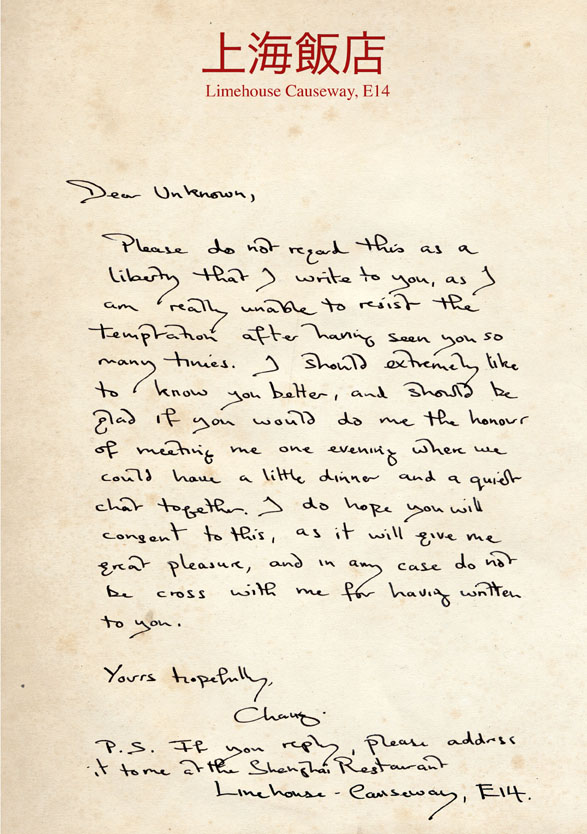 上海飯店
Limehouse Causeway, E14
Dear Unknown,
Please do not regard this as a
liberty that I write to you, as I
am really unable to resist the
temptation after having seen you so
many times. I should extremely like
to know you better, and should be
glad if you would do me the honour
of meeting me one evening where we
could have a little dinner and a quiet
chat together. I do hope you will
consent to this, as it will give me
great pleasure, and in any case do not
be cross with me for having written
to you.
Yours hopefully,
Chang.
P.S. If you reply, please address
it to me at the Shanghai Restaurant
Limehouse-Causeway, E14.